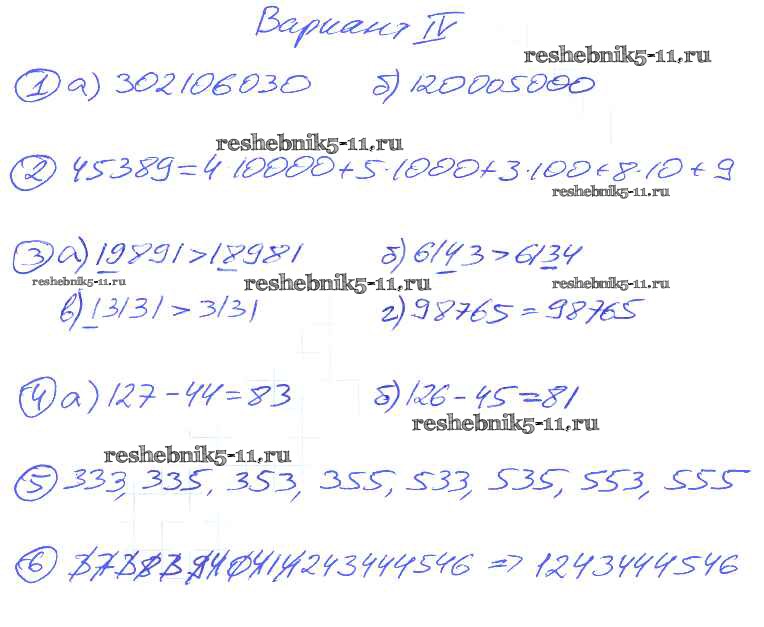 Вариант IV
reshebnik5-11.ru
1 а) 302106030 б) 120005000
reshebnik5-11.ru
2 45389=4·10000+5·1000+3·100+8·10+9
reshebnik5-11.ru
3 а) 19891>18981 б) 6143>6134
reshebnik5-11.ru reshebnik5-11.ru reshebnik5-11.ru
в) 13131>3131 г) 98765=98765
4 а) 127-44=83 б) 126-45=81
reshebnik5-11.ru
reshebnik5-11.ru
5 333, 335, 353, 355, 533, 535, 553, 555
6 37383940414243444546 => 1243444546